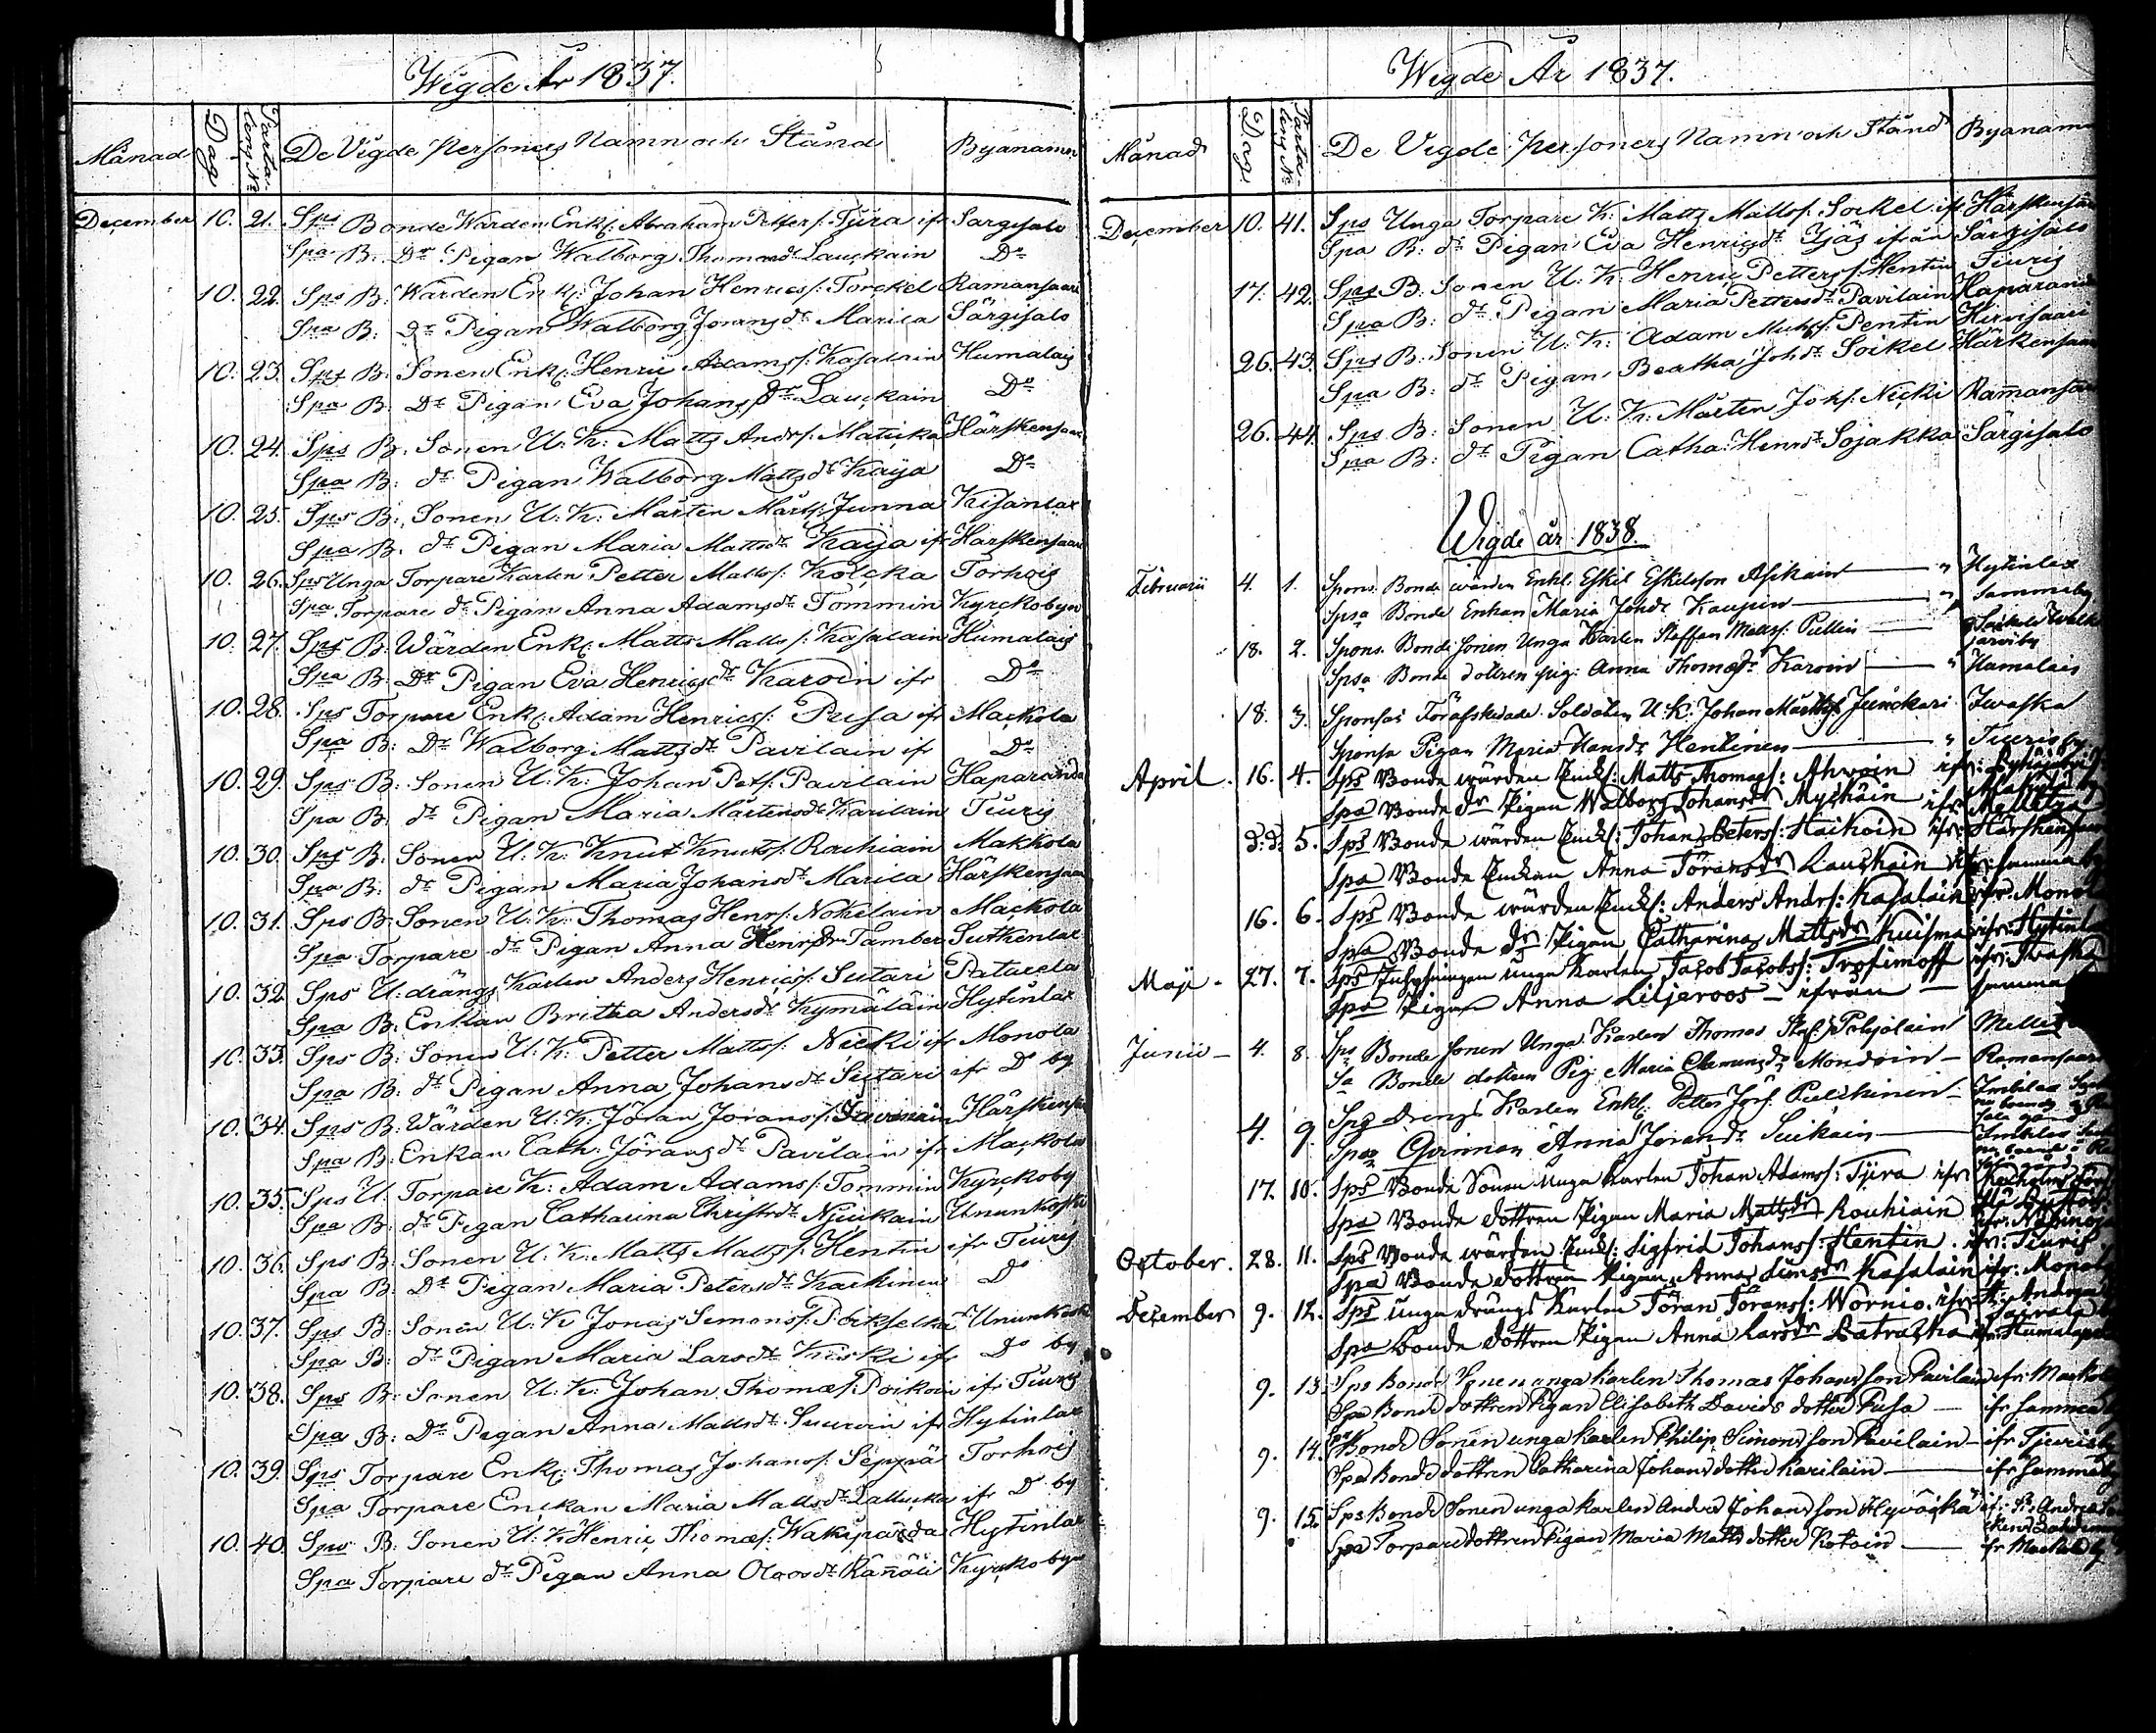 Wigde År 1837.
Månad Dag Parta-lens No De Vigde Personers Namn och Stånd Byanamn
December 10. 21. Sps Bonde Wärden Enkl: Abraham Petters: Tÿra ifr Särgisalo
Spa B: Dr Pigan Walborg Thomsdr Lauckain Do
10. 22. Sps B: Wärden Enkl: Johan Henricss: Torckel Ramansaari
Spa B: Dr Pigan Walborg Joransdr Marica Särgisalo
10. 23. Sps B: Sonen Enkl: Henric Adamss: Kasalain Humalais
Spa B: Dr Pigan Eva Johansdr Lauckain Do
10. 24. Sps B: Sonen U: K: Matts Andrs: Matucka Härskensaari
Spa B: dr Pigan Walborg Mattsdr Kaÿa Do
10. 25. Sps B: Sonen U: K: Mårten Mårts: Junna Kisanlax
Spa B: dr Pigan Maria Mattsdr Kaÿa ifr Härskensaari
10. 26. Sps Unga Torpare Karlen Petter Matts: Kolcka Torhois
Spa Torpare dr Pigan Anna Adamsdr Tommin Kyrckobyn
10. 27. Sps B: Wärden Enkl: Matts Matts: Kasalain Humalais
Spa B: Dr Pigan Eva Henricsdr Karoin ifr Do
10. 28. Sps Torpare Enkl: Adam Henricss: Pusa ifr Mackola
Spa B: Dr Walborg Mattsdr Pavilain ifr Do
10. 29. Sps B: Sonen U: K: Johan Pets: Pavilain Haparanda
Spa B: dr Pigan Maria Mårtensdr Karilain Tiuris
10. 30. Sps B: Sonen U: K: Knut Knuts: Rachiain Makkola
Spa B: dr Pigan Maria Johansdr Marica Härskensaari
10. 31. Sps B: Sonen U: K: Thomas Henrs: Nokelain Mackola
Spa Torpare dr Pigan Anna Henrsdr Tamber Sutkenlax
10. 32. Sps U: drängs Karlen Anders Henricss: Sutari Paturela
Spa B: Enkan Britha Andersdr Kymäläin Hytinlax
10. 33. Sps B: Sonen U: K: Petter Matts: Nicki ifr Monola
Spa B: dr Pigan Anna Johansdr Sutari ifr Do by
10. 34. Sps B: Wärden U: K: Jöran Joranss: Härskens
Spa B: Enkan Cath: Jöransdr Pavilain ifr Mackola
10. 35. Sps U: Torpare K: Adam Adams: Tommin Kyrckoby
Spa B: dr Pigan Catharina Christsdr Njuckain Ununkoski
10. 36. Sps B: Sonen U: K: Matts Matts: Hentin ifr Tiuris
Spa B: Dr Pigan Maria Petersdr Karkinen Do
10. 37. Sps B: Sonen U: K Jonas Simons: Pörkselka Ununkoski
Spa B: dr Pigan Maria Larsdr Kuski ifr Do by
10. 38. Sps B: Sonen U: K: Johan Thomas: Poikoin ifr Tiuris
Spa B: Dr Pigan Anna Mattsdr Suuroin ifr Hytinlax
10. 39. Sps Torpare Enkl: Thomas Johans: Seppä Torhois
Spa Torpare Enckan Maria Mattsdr Lattucka ifr Do by
10. 40. Sps B: Sonen U: K Henric Thoms: Wakiparda Hytinlax
Spa Torpare dr Pigan Anna Olovsdr Kañäli Kyrckobyn
Wigde År 1837.
Månad Dag Parta-lens No De Vigde Personers Namn och Stånd Byanamn
December 10. 41. Sps Unga Torpare K: Matts Matts: Sockel ifr Härskensaari
Spa B: dr Pigan Eva Henricsdr Ijäs ifrån Särgisalo
17. 42. Sps B: Sonen U: K: Henric Petterss: Hentin Tiuris
Spa B: dr Pigan Maria Pettersdr Pavilain Haparanda
26. 43. Sps B: Sonen U: K: Adam Michs: Pentin Hirvisaari
Spa B: dr Pigan Beatha Johdr Soikel Härkensaari
26. 44. Sps B: Sonen U: K: Mårten Johs: Nicki Ramansaari
Spa B: dr Pigan Catha: Henrdr Sojakka Särgisalo
Wigde år 1838.
Februarii 4. 1. Spons. Bonde wärden Enkl. Eskil Eskelsson Asikain " Hytinlax
Spsa Bonde Enkan Maria Johdr Kaupin " Sammaby
18. 2. Spons. Bonde sonen Unga Karlen Staffan Matts: Pullin järviby
Spsa Bonde dottren pig: Anna Thomasdr Karvin " Humalais
18. 3. Sponsus Förafskedade Soldaten U: K: Johan Matts: Junckari Iwaska
Sponsa Pigan Maria Hansdr Hentinen " Tiurisby
April. 16. 4. Sps Bonde wärden Enckl: Matts Thomass: Ahvoin ifr:
Spa Bonde dr Pigan Walborg Johansdr Myckäin ifr
d:d: 5. Sps Bonde wärden Enckl: Johan Peterss: Haikoin ifr: Härskensaari
Spa Bonde Enckan Anna Jöransdr Lauckain ifr: samma by
16. 6. Sps Bonde wärden Enckl: Anders Andrs: Kasalain ifr: Monola
Spa Bonde dr Pigan Catharina Mattsdr Kuisma ifr: Hytinlax
Maji. 27. 7. Sps Inhysningen unga Karlen Jacob Jacobs: Trofimoff ifr: Iwaska
Spa Pigan Anna Liljeroos - ifrån - samma
Junii - 4. 8. Sps Bonde sonen Unga Karlen Thomas Staf: Pohjolain
Sa Bonde dottren Pig: Maria Clemensdr Mondoin - Ramansaari
4. 9. Sps Drengs Karlen Enkl: Petter Jörs: Pulckinen -
Spa Qvinnan Anna Joransdr Suikain
17. 10. Sps Bonde Sonen unga Karlen Johan Adams: Tÿra ifr
Spa Bonde dottren Pigan Maria Mattsdr Rouhiain
October. 28. 11. Sps Bonde wärden Enckl: Sigfrid Johans: Hentin. ifr: Tiuris
Spa Bonde dottren Pigan Anna Simsdr Kasalain ifr: Monola
December 9. 12. Sps unga drängs Karlen Jöran Jöranss: Wornio. ifr St: Andreæ
Spa Bonde dottren Pigan Anna Larsdr Ratraska ifr: Humalais
9. 13. Sps Bonde Sonen unga karlen Thomas Johansson Pavilain ifr: Mackola
Spa Bonde dottren Pigan Elisabeth Davids dotter Pusa - ifr samma
9. 14. Sps Bonde Sonen unga karlen Philip Simonsson Pavilain - ifr Tjuris
Spa Bonde dottren Catharina Johans dotter Karilain ifr samma
9. 15. Sps Bonde Sonen unga karlen Anders Johansson Hyvöckä ifr: St: Andreæ
Spa Torpare dottren Pigan Maria Matts dotter Kotoin ifr Mackola by